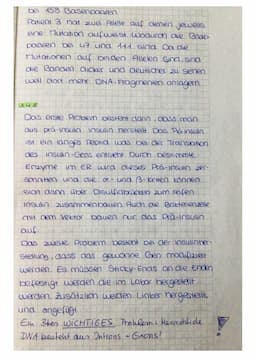 bei 153 Basenpaaren
Patient 3 hat zwei Allele auf denen jeweils
eine Mutation aufweist wodurch die Basen-
paaren bei 47 und 111 sind. Da die
Mutationen auf beiden Allelen sind, sind
die Banden dicker und deutlicher zu sehen
weil dort mehr DNA-Fragmenten anlagern.
Das erste Problem besteht darin, dass man
aus prä-Insulin Insulin herstellt. Das Prä-Insulin
ist ein langes Peptid was bei der Translation
des Insulin-Gens entsteht. Durch bestimmte
Enzyme im ER wird dieses Prä-Insulin zer-
schnitten und die α- und β-Ketten können
sich dann über Disulfidbrücken zum reifen
Insulin zusammenbauen. Auch die Bakterienzelle
mit dem Vektor bauen nur das Prä-Insulin
auf.
Das zweite Problem besteht bei der Insulinher-
stellung, dass das gewonne Gen modifiziert
werden. Es müssen Sticky-Ends an die Enden
befestigt werden die im Labor hergestellt
werden. Zusätzlich werden Linker hergestellt
und angefügt.
Ein 3tes WICHTIGES Problem: Menschliche
DNA besteht aus Introns + Exons!